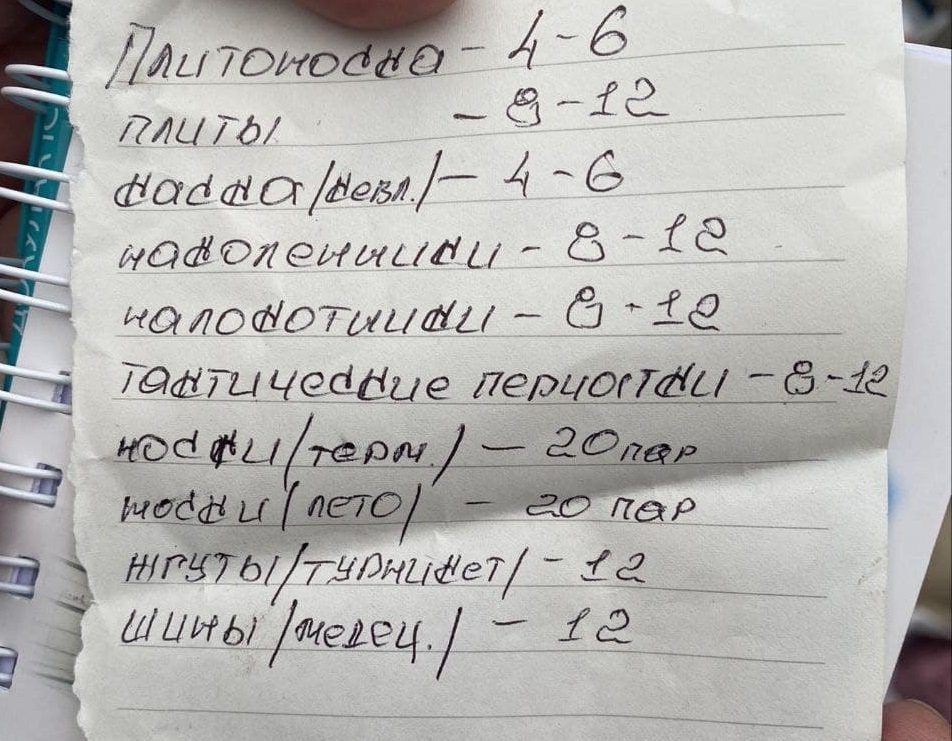 Плитоноска - 4-6
плиты - 8-12
каска/кевл./ - 4-6
наколенники - 8-12
налокотники - 8-12
тактические перчатки - 8-12
носки/терм./ - 20 пар
носки/лето/ - 20 пар
жгуты/турникет/ - 12
шины/медец./ - 12